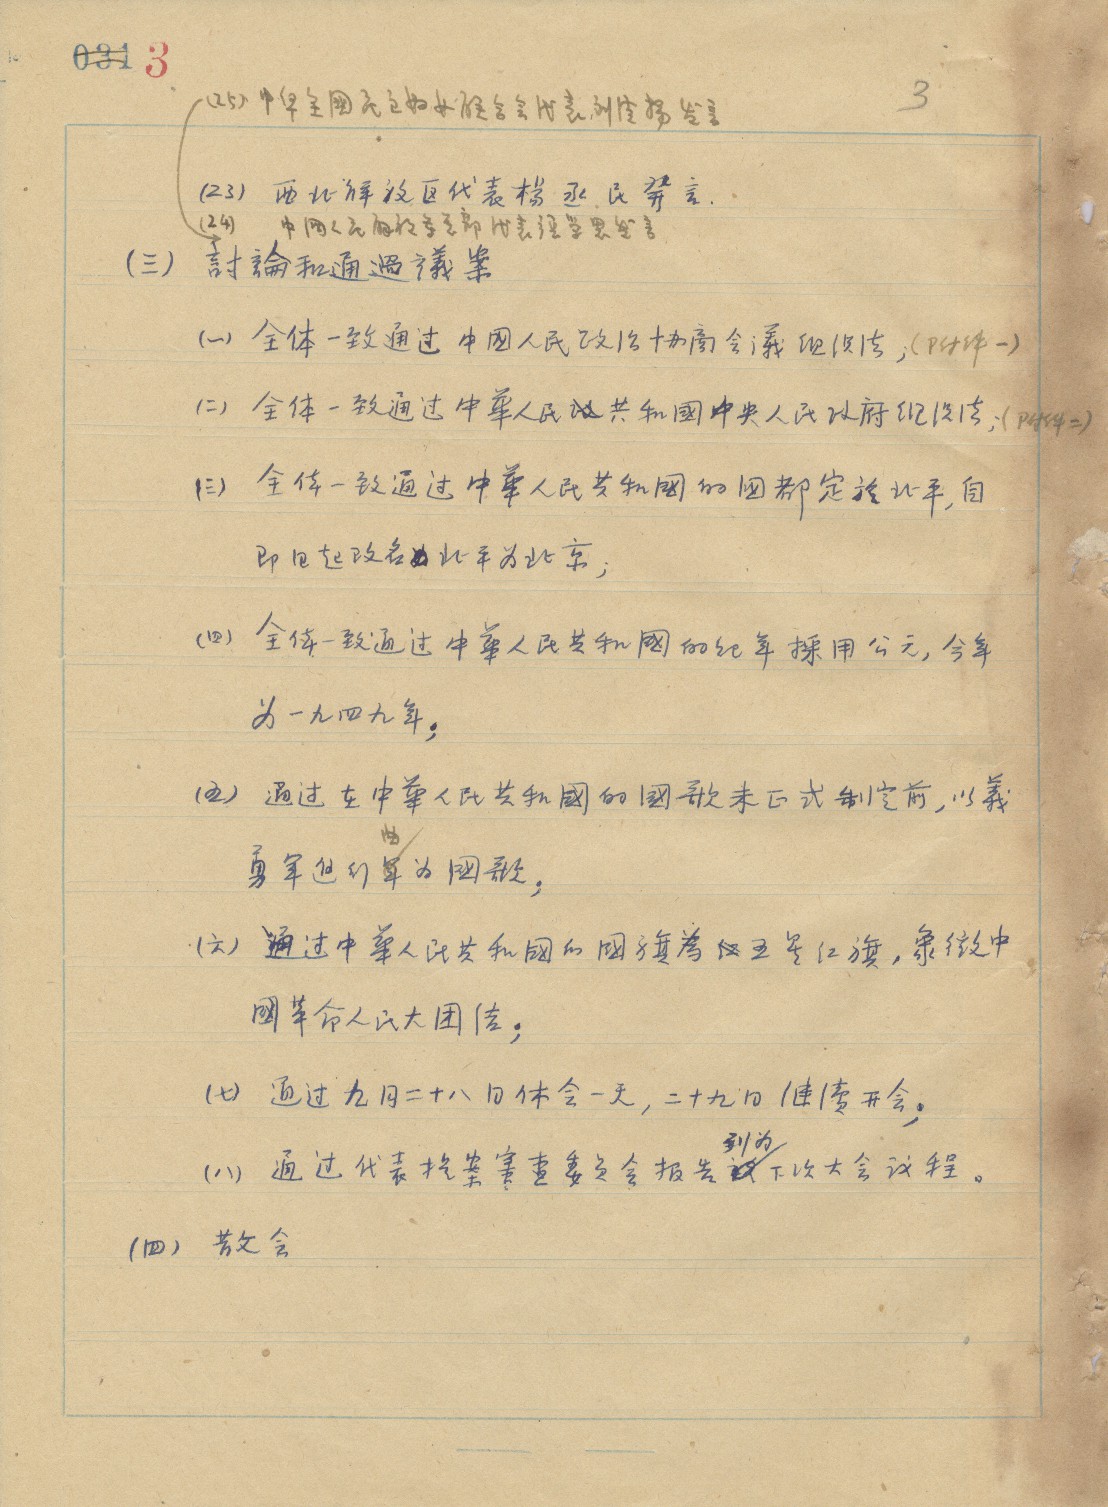 031 3
3
(25) 中华全國民主妇女联合会代表刘清揚发言
(23) 西北解放区代表楊丞民發言.
(24) 中国人民解放军总部代表張学思发言
(三) 討論和通過議案
(一) 全体一致通过中國人民政治协商会議组织法;(附件一)
(二) 全体一致通过中華人民共和國中央人民政府组织法;(附件二)
(三) 全体一致通过中華人民共和國的國都定於北平,自
即日起改名北平为北京;
(四) 全体一致通过中華人民共和國的纪年採用公元,今年
为一九四九年;
(五) 通过在中華人民共和國的國歌未正式制定前,以義
勇军进行曲为國歌;
(六) 通过中華人民共和國的國旗為五星红旗,象徵中
國革命人民大团结;
(七) 通过九月二十八日休会一天,二十九日継續开会;
(八) 通过代表提案審查委员会报告列为下次大会议程。
(四) 散会